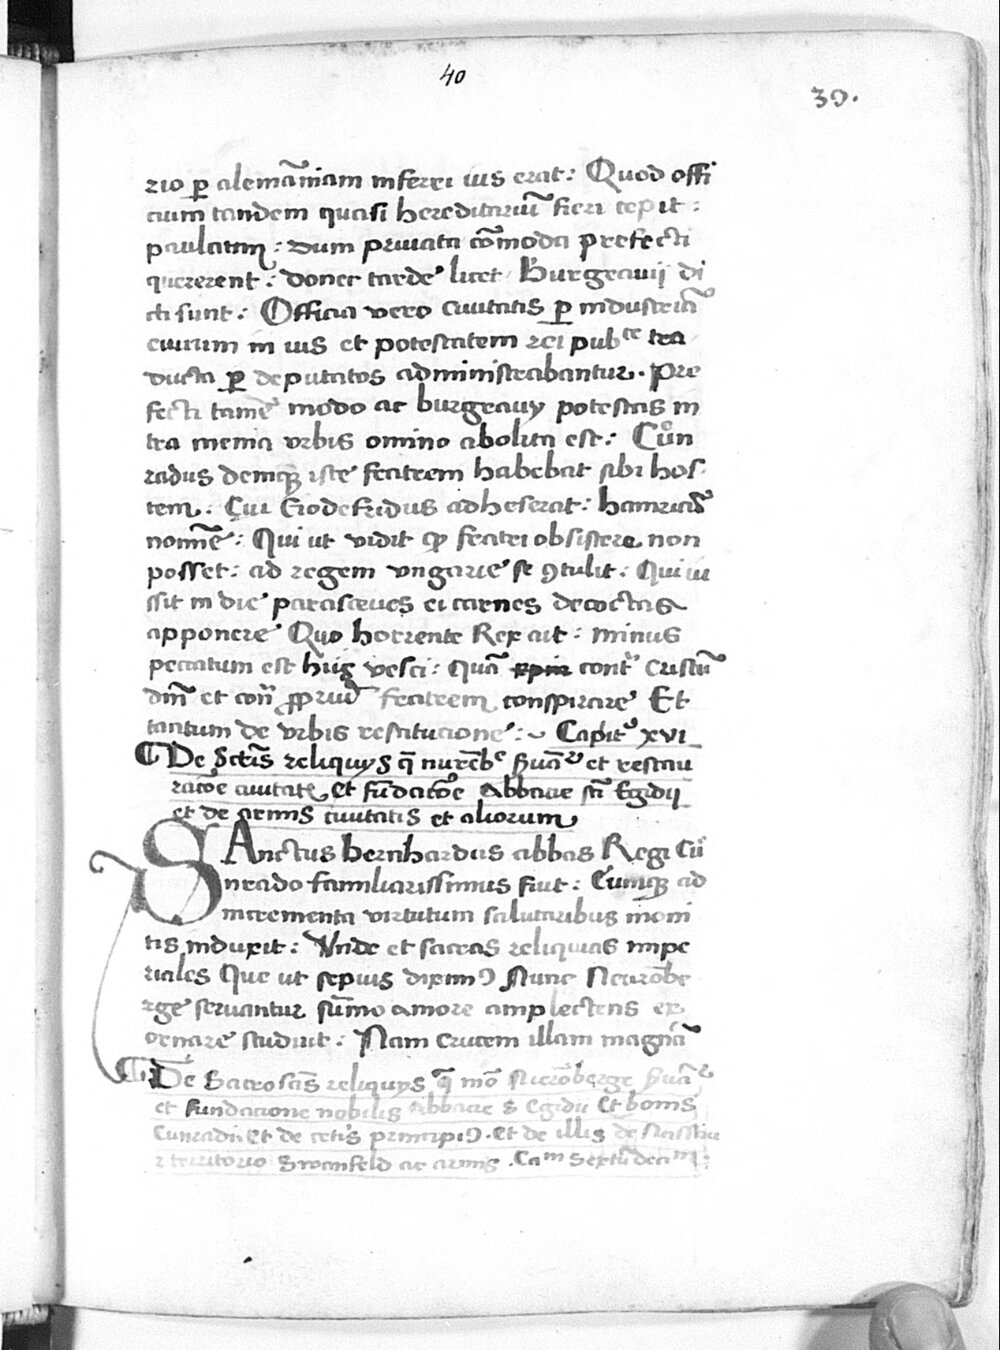 40
39.
rio ꝑ alemāniam inferri ius erat: Quod offi
cium tandem quasi hereditariū fieri cepit:
paulatim: dum priuata cōmoda prefecti
quererent: donec tarde licet Burgrauij di
cti sunt: Officia vero ciuitatis ꝑ industriā
ciuium in ius et potestatem rei pubce tra
ducta ꝑ deputatos administrabantur. Pre
fecti tamē modo ac burgrauy potestas in
tra menia vrbis omino abolita est: Cůn
radus denique iste fratrem habebat sibi hos
tem. Cui Giodefridus adheserat: hainricus
nomē: Qui ut vidit ꝙ fratri obsistere non
posset: ad regem vngarie se ꝯtulit: Qui iu
ssit in die parasceues ei carnes decoctas
apponere Quo horrente Rex ait: minus
peccatum est huiꝰ vesci: quā contr̄ cristū
dm̄ et con̄ ꝓpriū fratrem conspirare Et
tantum de vrbis restitucione: Capitꝰ xvi
¶ De sctīs reliquys q̄ nurēbe ẜuāt et restau
racōe ciuitatꝭ et fūdacōe Abbacie scī Egidii
et de armis ciuitatis et aliorum
SAnctus bernhardus abbas Regi Ců
nrado familiarissimus fiut: Cumque ad
incrementa virtutum salutaribus moni
tis induxit: Vnde et sacras reliquias impe
riales Que ut sepius diximꝰ Nunc Neurōbe
rge seruantur sūmo amore amplectens ex
ornare studuit: Nam crucem illam magnā
¶ De Sacrosctīs reliquys q̄ mō Nurōberge ẜuāt
et fundacione nobilis Abbacie S Egidii Et bonis
Cunradi Et de cetis principiꝰ. Et de illis de Nassau
z territorio Swanfeld ac armis. Cam Sextūdecim: